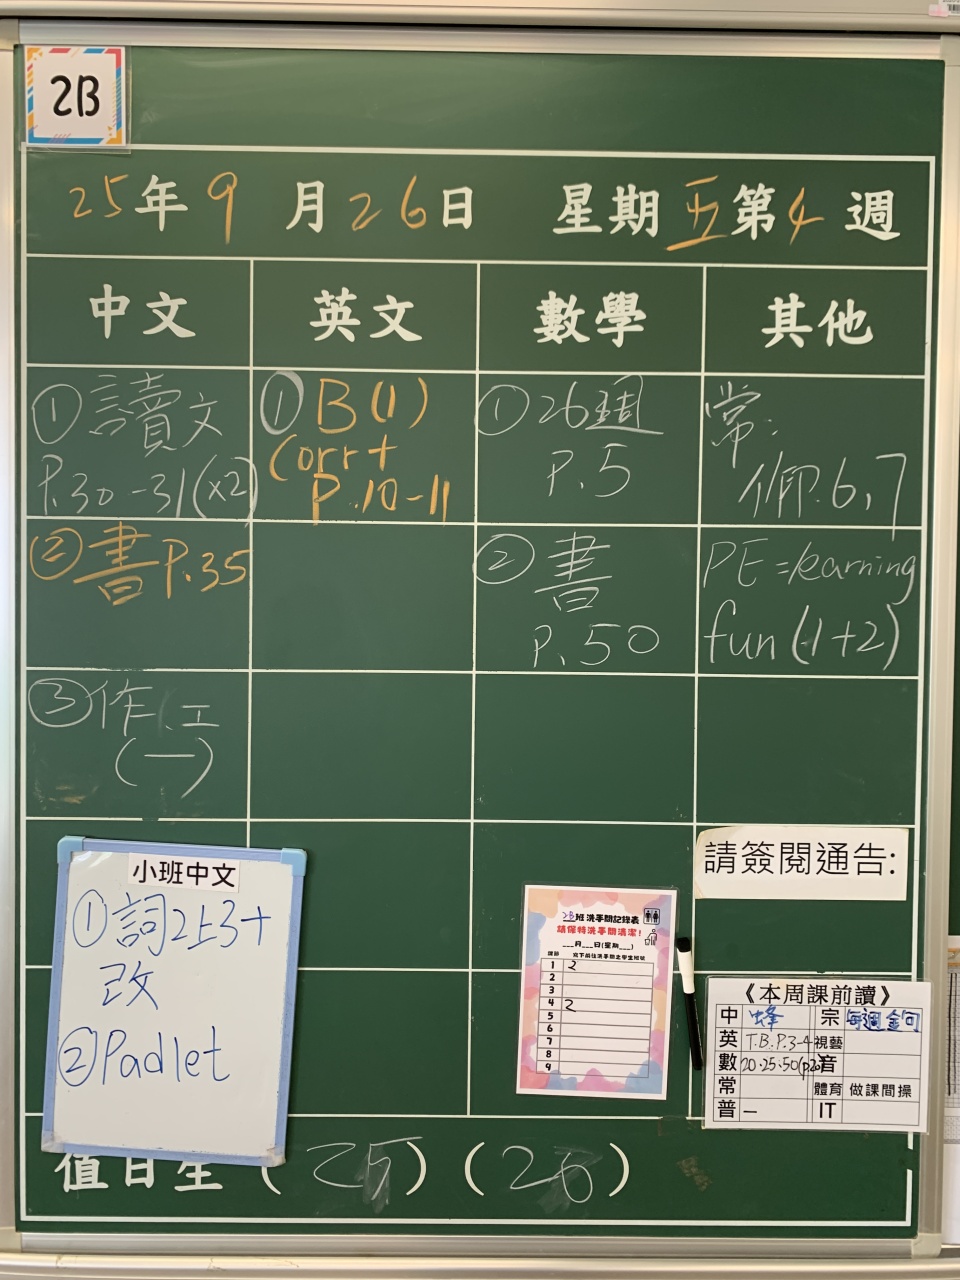 2B
25年9月26日 星期五第4週
中文 英文 數學 其他
①讀文
P.30-31(x2)
①B(1)
Corr+
P.10-11
①26週
P.5
常:
仰.6,7
②書P.35
②書
P.50
PE=learning
fun(1+2)
③作.工
(一)
小班中文
①詞2上3+
改
②Padlet
2B班 洗手間記錄表
請保持洗手間清潔!
___月___日(星期___)
課節 寫下前往洗手間之學生班號
1 2
2
3
4 2
5
6
7
8
9
請簽閱通告:
《本周課前讀》
中 蜂 宗 每週金句
英 T.B.P.3-4 視藝
數 20.25.50 音
常 體育 做課間操
普 一 IT
值日生(25)(26)